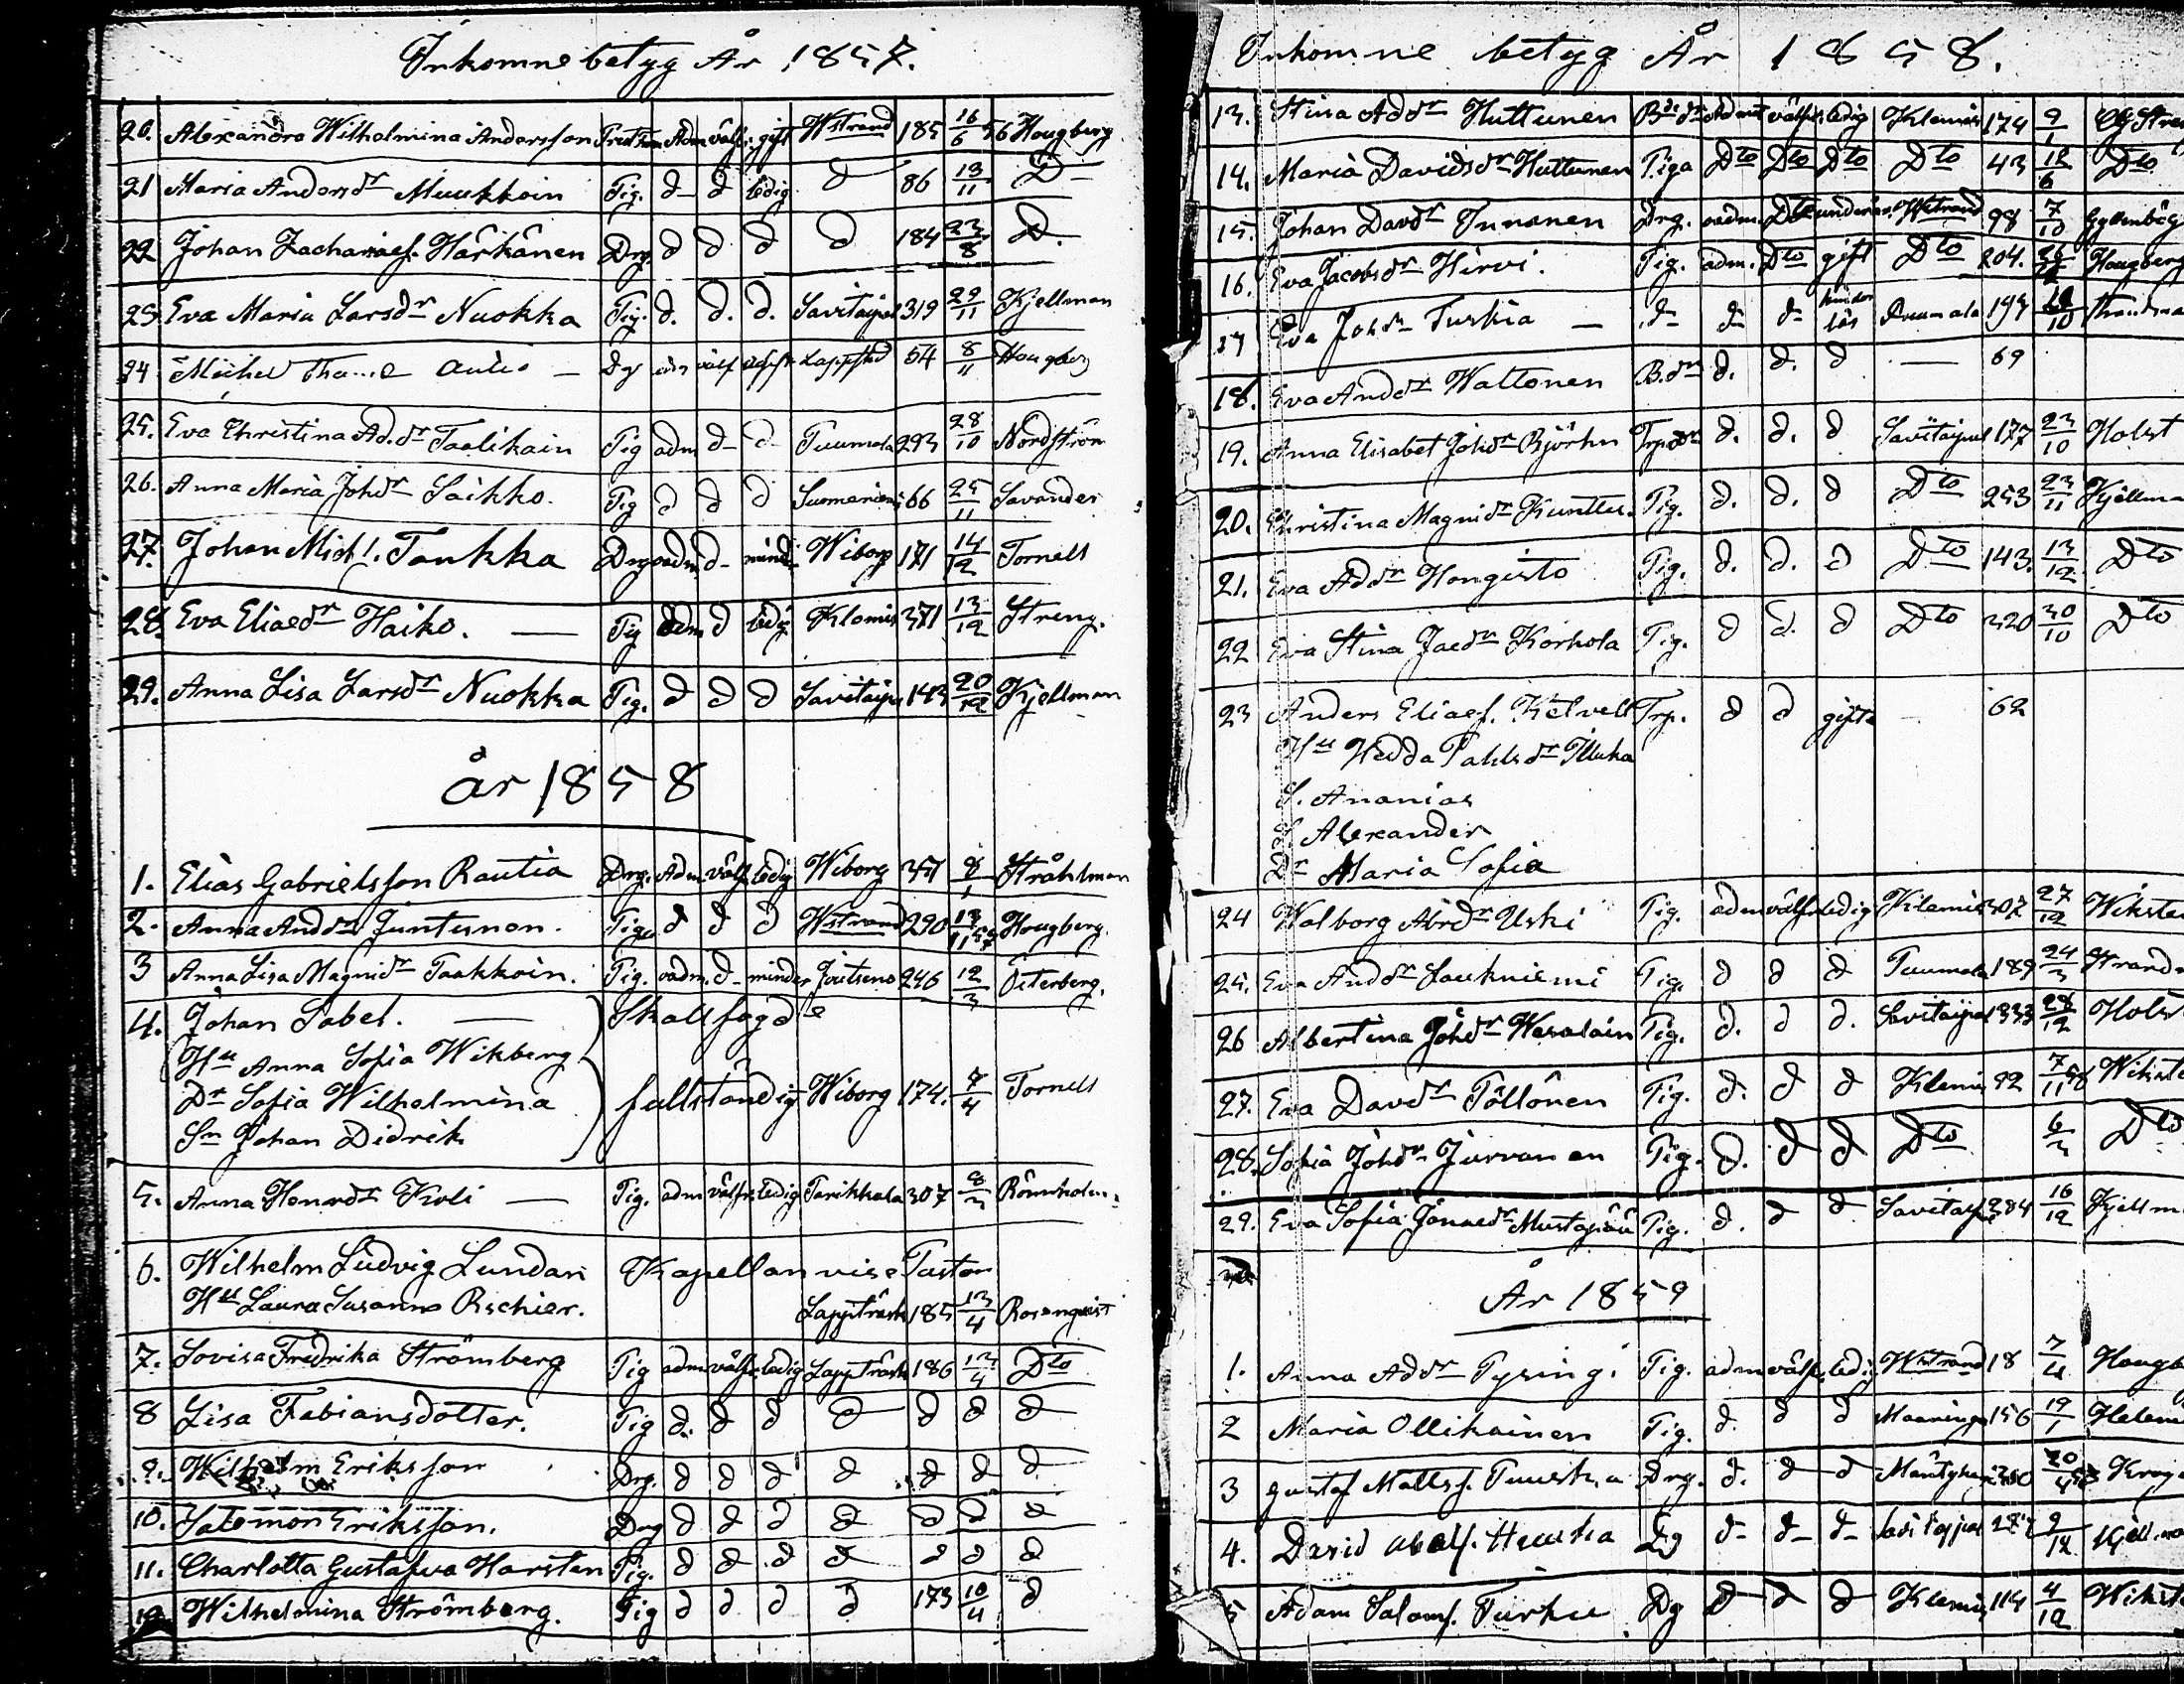 Inkomne betyg År 1857.
20. Alexandra Wilhelmina Andersson Adm välfr. gift Wstrand 185 16/6 56 Hougberg
21 Maria Andersdr Muukkoin Pig. d d ledig d 86 13/11 D
22 Johan Zachariaes. Härkänen Drg. d d d d 184 23/8 D.
23. Eva Maria Larsdr Nuokka Pig. d. d. d. Savitaipal 319 29/11 Kjellman
24 Michel Dg välf 54 8/11 Hougberg
25. Eva Christina Ad.dr Taalikain Pig adm d d Puumala 293 28/10 Nordström
26. Anna Maria Johdr Saikko. Pig d d d Suomeniemi 66 25/11 Savander
27. Johan Mich s. Tankka Drg oadm d mind. Wiborg 171 14/12 Tornell
28. Eva Eliaedr Haiko. — Pig adm d ledig Klemis 371 13/12 Streng.
29. Anna Lisa Larsdr Nuokka Pig. d d d Savitaipa 143 20/12 Kjellman
år 1858
1. Elias Gabrielsson Rautia Drg. Adm. välf. ledig Wiborg 351 8/1 Stråhlman
2. Anna Anddr Juntunen. Piga d d d Wstrand 290 13/11 57 Hougberg.
3 Anna Lisa Magnidr Taakkoin. Pig. oadm. d minder Joutseno 246 12/3 Österberg.
4. Johan Sabel. — Skallfogde
Hu Anna Sofia Wikberg
Dr Sofia Wilhelmina fullständig Wiborg 174. 7/4 Tornell
Sn Johan Didrik
5. Anna Henrdr Koli — Pig. adm välfr. ledig Parikkala 307 8/3 Rönnholm.
6. Wilhelm Ludvig Lundan Kapellan vise Pastor
Hu Laura Susanna Bschier. Lappträsk 185 13/4 Rosenqvist
7. Lovisa Fredrika Strömberg Pig adm välfr ledig Lappträsk 186 13/4 Dto
8 Lisa Fabiansdotter. Pig d. d d d d d d
9. Wilhelm Eriksson Drg. d d d d d d d
10. Salomon Eriksson. Drg d d d d d d d
11. Charlotta Gustafva Harsten Pig. d d d d d d d
12 Wilhelmina Strömberg. Pig d d d d 173 10/4 d
Inkomne betyg År 1858.
13. Stina Addr Huttunen Bdedr Admt välfr. ledig Klemis 174 9/1
14. Maria Davidsdr Huttunen Piga Dto Dto Dto Dto 43 18/6 Dto
15. Johan Davdr Innanen Drg. oadm. Dto underår. Wstrand 98 7/10 Gyllenbög
16. Eva Jacobsdr Hirvi. Pig. adm. Dto gift Dto 204. Hougberg
17 Eva Johdr Turkia — d d d hinderlös Puumala 194 18/10 Strandma
18. Eva Anddr Waltonen B.dr d. d. d — 69
19. Anna Elisabet Johdr Björkn Trp.dr d. d. d Savitaipal 177 23/10 Holst
20. Christina Magnidr Kunttu. Pig. d. d. d Dto 253 23/11 Kjellma
21. Eva Addr Hongisto Pig. d. d. d Dto 143. 13/12 Dto
22 Eva Stina Jaedr Korhola Pig. d d. d Dto 320 30/10 Dto
23 Anders Eliaes. Ketvell Trp. d d gifta — 62
Hu Hedda Pahlsdr Illuka
S. Ananias
S Alexander
Dr Maria Sofia
24 Walborg Abrdr Uski Pig. adm välfr ledig Klemis 307 27/12 Wikste
25. Eva Anddr Laukniemi Pig. d d d Puumala 189 24/3 Strand
26 Albertina Johdr Wesalain Pig. d. d d. Savitaipal 333 28/12 Holst
27. Eva Davdr Pöllönen Pig. d. d d Klemis 92 7/11 58 Wikste
28. Sofia Johdr Jurvanen Pig. d. d d Dto 6/3 Dto
29. Eva Sofia Jonaedr Mustapää Pig. d. d d Savitaip 284 16/12 Kjellm
År 1859
1. Anna Addr Pysing Pig. adm välfr. ledig Wstrand 18 7/4 Hougb
2 Maria Ollikainen Pig. d. d d Maaninga 156 19/1 Helen
3 Gustaf Mattss. Puuska Drg. d. d d Mäntyhar 260 20/4 58 Krog
4. David Dg d d d Savitaipal 9/12 Kjellma
5 Adam Saloms. Turku Dg d d d Klemis 114 4/12 Wikst